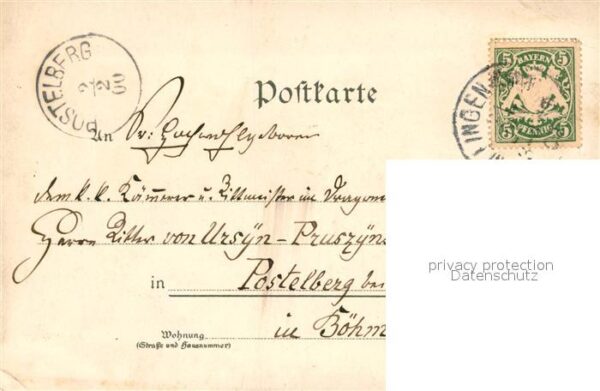 POSTELBERG
2 2 00
Postkarte
BAYERN
5 5
5 5
PFENNIG
LINGEN
An
Sr: Hochwohlgeboren
dem k. k. Kämmerer u. Rittmeister im Dragone
Herrn Ritter von Ursÿn-Pruszÿns
in Postelberg bei
in Böhm
Wohnung
(Straße und Hausnummer)
privacy protection
Datenschutz